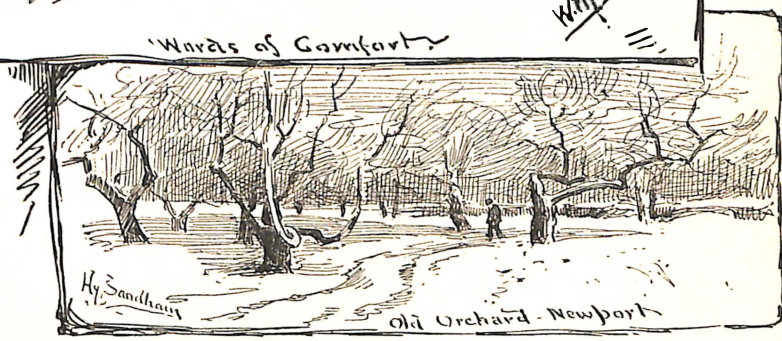 'Words of Comfort'
Hy. Sandham
Old Orchard - Newport